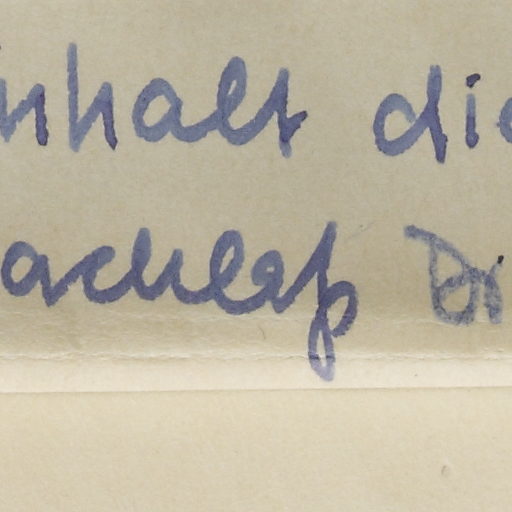 inhalt die
achlaß Dr